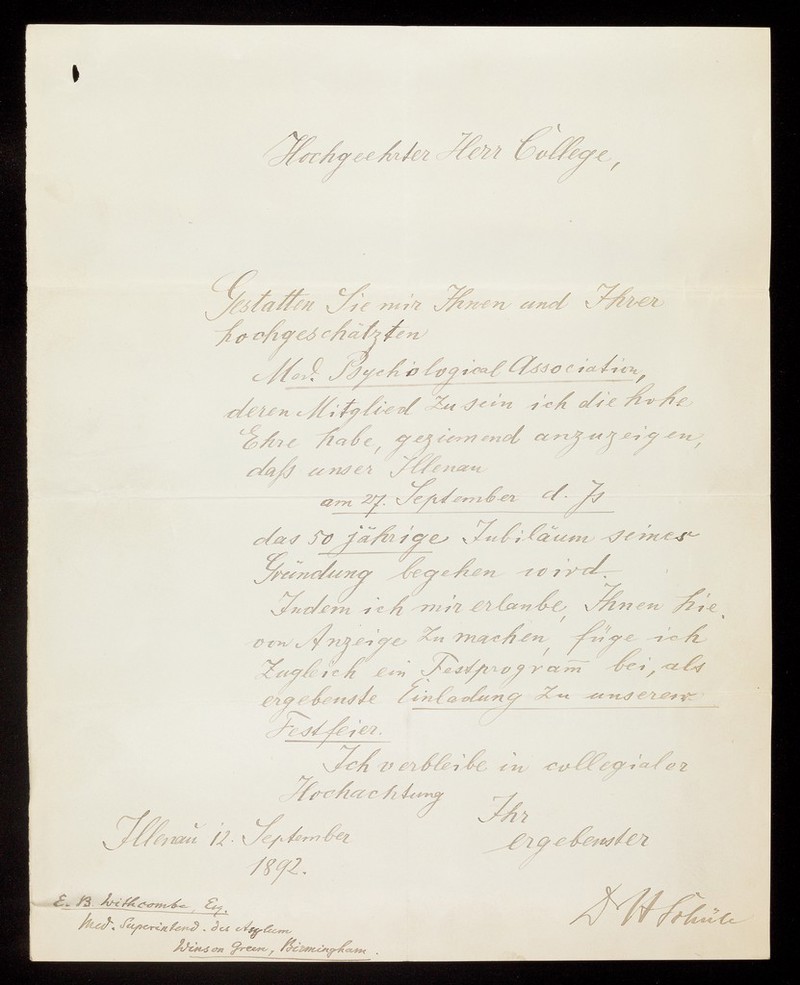 Hochgeehrter Herr College,
Gestatten Sie mir Ihnen und Ihrer
hochgeschätzten
Med. Psychological Association,
deren Mitglied zu sein ich die hohe
Ehre habe, geziemend anzuzeigen,
daß unser Illenau
am 27. September d. Js
das 50 jährige Jubiläum seiner
Gründung begehen wird.
Indem ich mir erlaube, Ihnen hie
von Anzeige zu machen, füge ich
zugleich ein Festprogram̅ bei, als
ergebenste Einladung zu unserer
Festfeier.
Ich verbleibe in collegialer
Hochachtung
Ihr
ergebenster
Illenau 12. September
1892.
Dr H Schüle
E. B. Withcombe, Esq.
Med. Superintend. des Asylum
Winson Green, Birmingham.